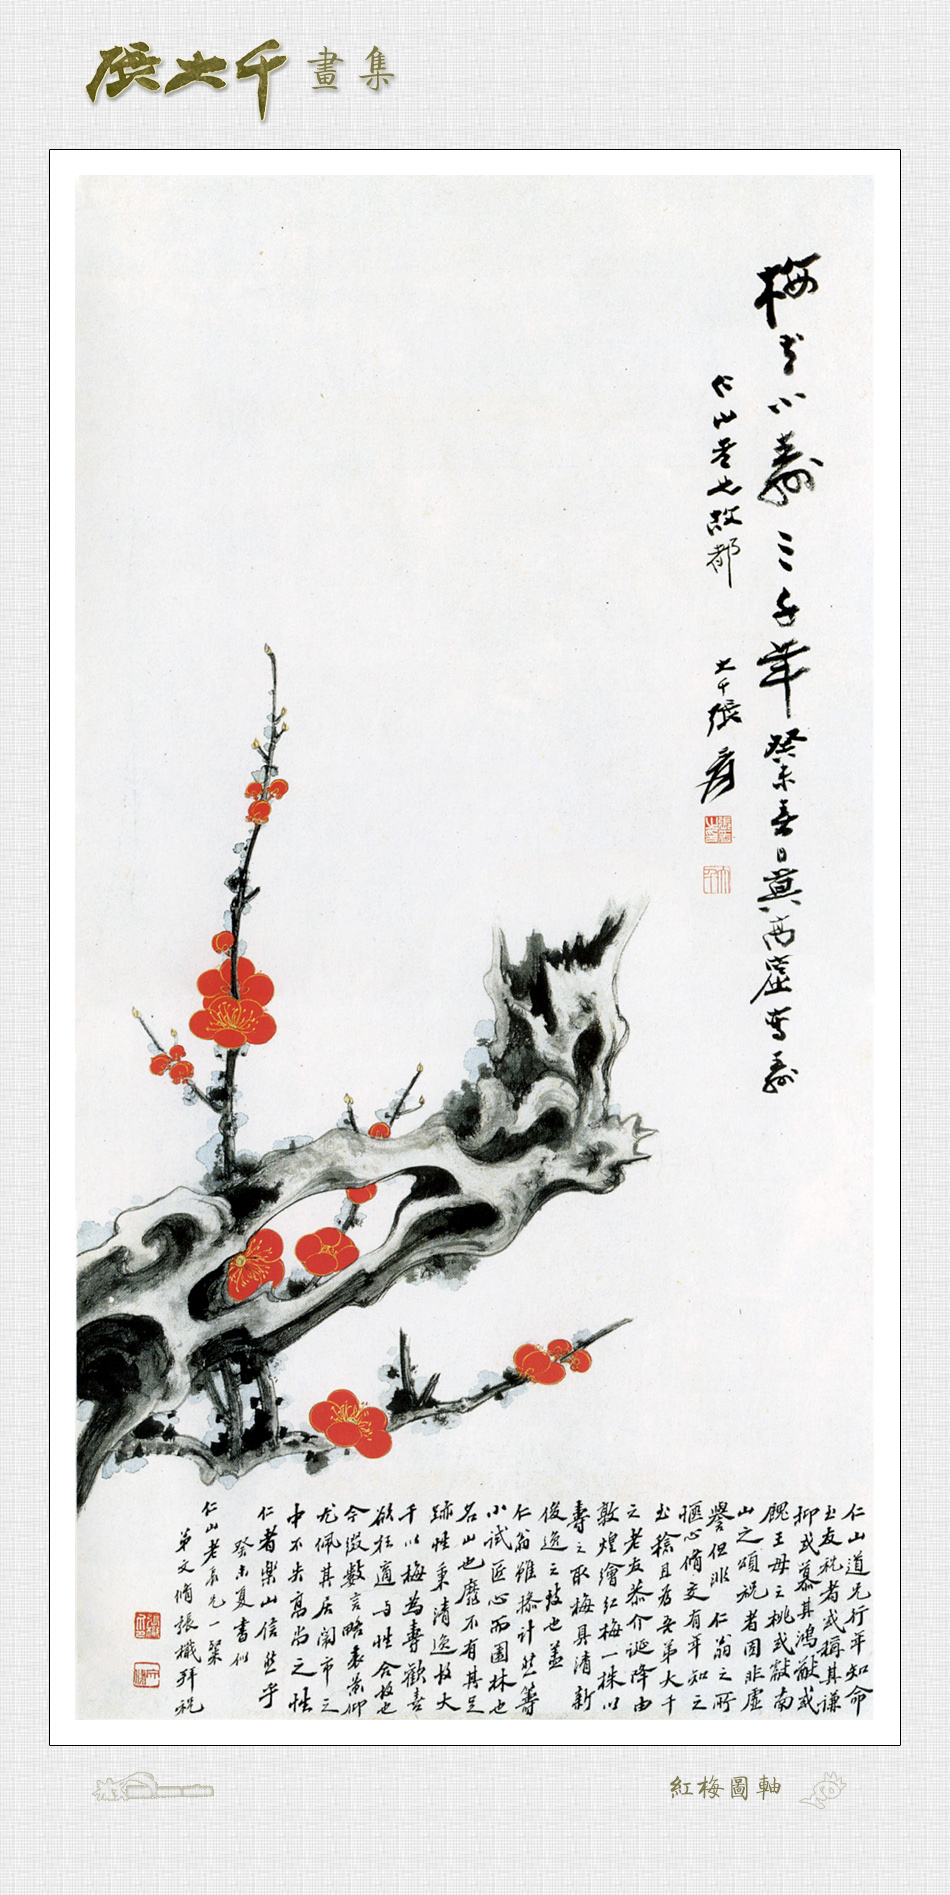 張大千 畫集
梅者小壽三千年 癸未春日莫高窟寫壽
仁山老兄 故都
大千張爰
仁山道兄行年知命
上友祝者或稱其謙
抑或慕其鴻猷或
餽王母之桃或獻南
山之頌祝者固非虛
譽但非 仁翁之所
愜心脩交有年知之
最稔且為吾弟大千
之老友恭介誕降由
敦煌繪紅梅一株以
壽之取梅具清新
俊逸之致也蓋
仁翁雖擅計然籌
小試匠心而園林也
名山也靡不有其足
跡性秉清逸故大
千以梅為壽歡喜
欲狂適与性合故也
今綴數言略表景仰
尤佩其居鬧市之
中不失高尚之性
仁者樂山信然乎
癸未夏書似
仁山老哥兄一粲
弟文脩張楫拜祝
紅梅圖軸